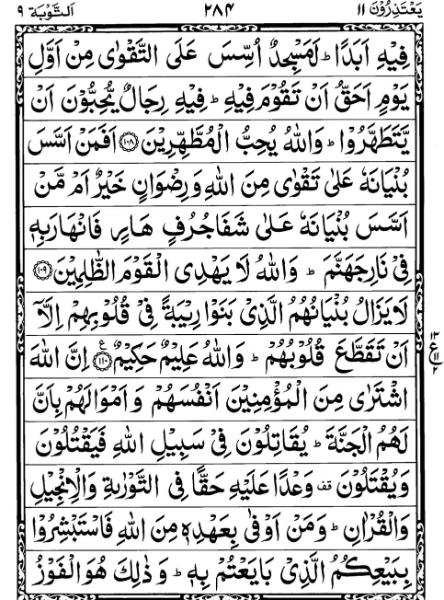 يَعْتَذِرُوْنَ ١١ ٢٨٤ اَلتَّوْبَة ٩
فِيْهِ اَبَدًا ؕ لَمَسْجِدٌ اُسِّسَ عَلَى التَّقْوٰى مِنْ اَوَّلِ
يَوْمٍ اَحَقُّ اَنْ تَقُوْمَ فِيْهِ ؕ فِيْهِ رِجَالٌ يُّحِبُّوْنَ اَنْ
يَّتَطَهَّرُوْا ؕ وَاللّٰهُ يُحِبُّ الْمُطَّهِّرِيْنَ ۝١٠٨ اَفَمَنْ اَسَّسَ
بُنْيَانَهٗ عَلٰى تَقْوٰى مِنَ اللّٰهِ وَرِضْوَانٍ خَيْرٌ اَمْ مَّنْ
اَسَّسَ بُنْيَانَهٗ عَلٰى شَفَا جُرُفٍ هَارٍ فَانْهَارَ بِهٖ
فِيْ نَارِ جَهَنَّمَ ؕ وَاللّٰهُ لَا يَهْدِى الْقَوْمَ الظّٰلِمِيْنَ ۝١٠٩
لَا يَزَالُ بُنْيَانُهُمُ الَّذِيْ بَنَوْا رِيْبَةً فِيْ قُلُوْبِهِمْ اِلَّاۤ
اَنْ تَقَطَّعَ قُلُوْبُهُمْ ؕ وَاللّٰهُ عَلِيْمٌ حَكِيْمٌ ۝١١٠ ع اِنَّ اللّٰهَ
١٣ ع ١١ ٢
اشْتَرٰى مِنَ الْمُؤْمِنِيْنَ اَنْفُسَهُمْ وَاَمْوَالَهُمْ بِاَنَّ
لَهُمُ الْجَنَّةَ ؕ يُقَاتِلُوْنَ فِيْ سَبِيْلِ اللّٰهِ فَيَقْتُلُوْنَ
وَيُقْتَلُوْنَ قف وَعْدًا عَلَيْهِ حَقًّا فِى التَّوْرٰىةِ وَالْاِنْجِيْلِ
وَالْقُرْاٰنِ ؕ وَمَنْ اَوْفٰى بِعَهْدِهٖ مِنَ اللّٰهِ فَاسْتَبْشِرُوْا
بِبَيْعِكُمُ الَّذِيْ بَايَعْتُمْ بِهٖ ؕ وَذٰلِكَ هُوَ الْفَوْزُ